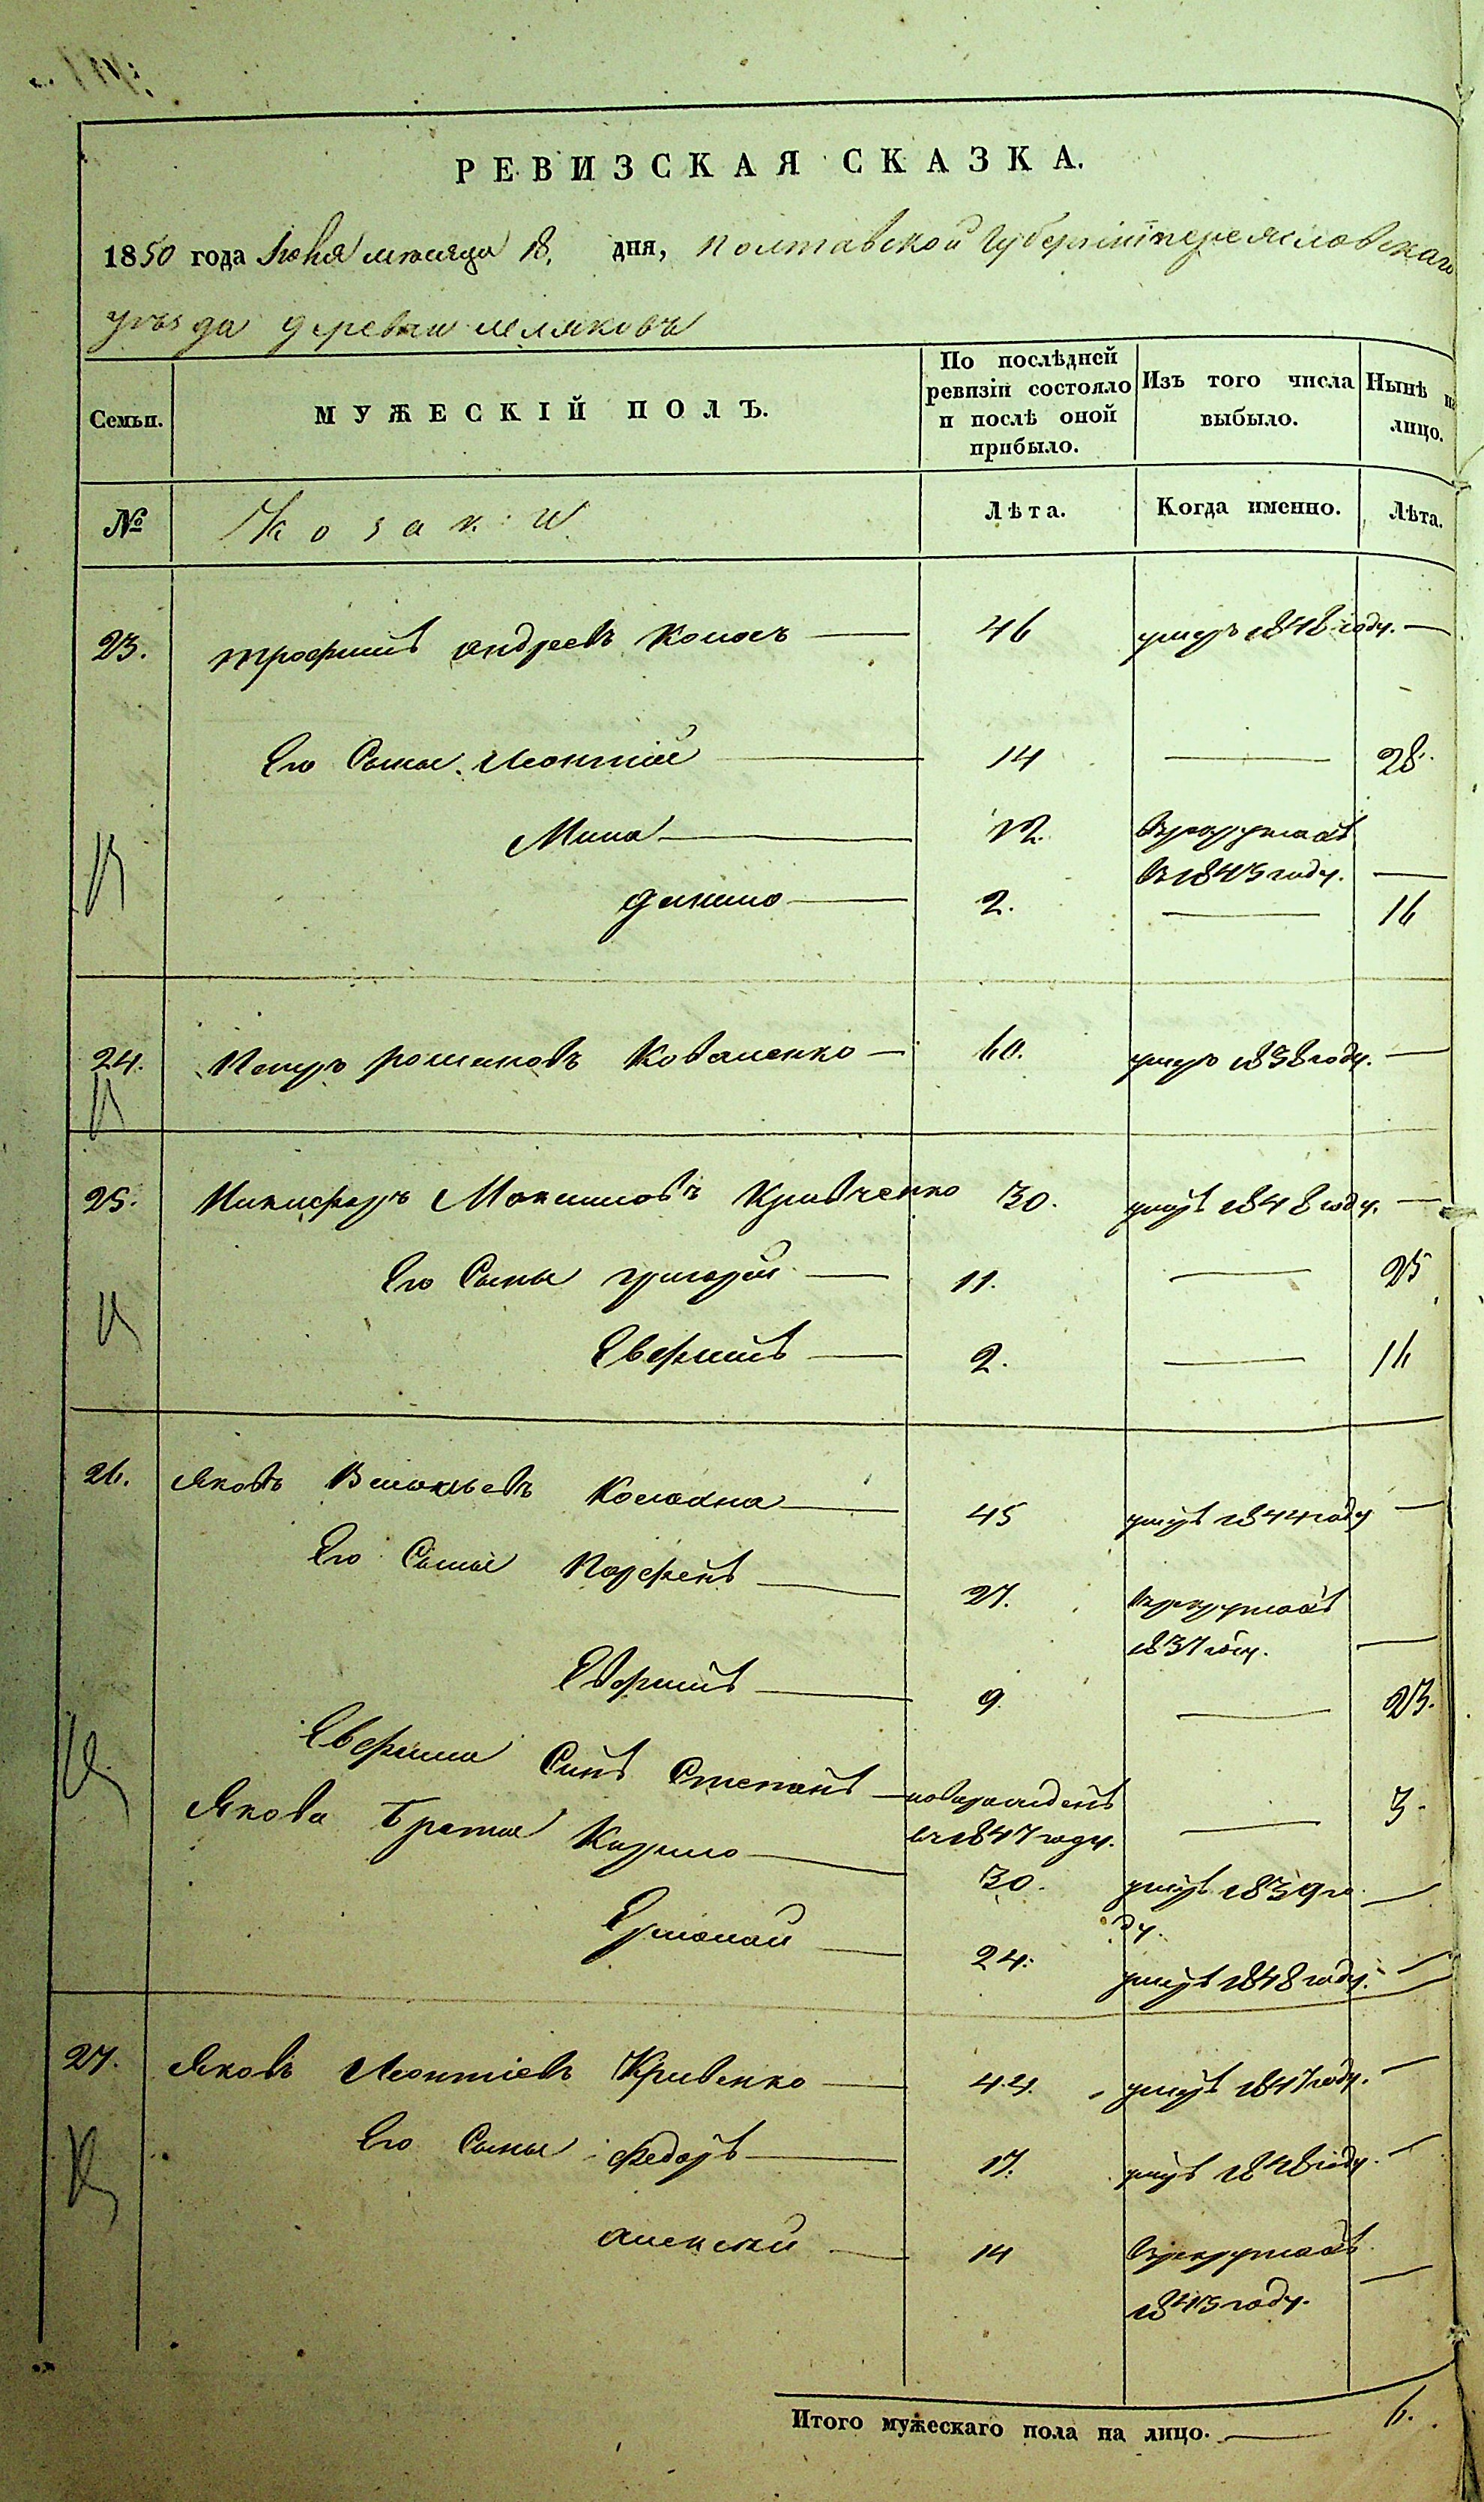 РЕВИЗСКАЯ СКАЗКА.
1850 года Июня месяца 18. дня, Полтавской Губернии переясловскаго
уезда деревни
Семьи. МУЖЕСКІЙ ПОЛЪ. По послѣдней ревизіи состояло и послѣ оной прибыло. Изъ того числа выбыло. Нынѣ на лицо.
№ Козаки Лѣта. Когда именно. Лѣта.
23. трофимъ андреевъ 46 умеръ 1848 году. —
Его Сыны Леонтій 14 — 28.
Мина 12. Врекрутахъ
в 1845 году. —
данило 2. — 16
24. Петръ романовъ Коваленко — 60. умеръ 1838 году. —
25. Никифоръ Максимовъ Кривченко 30. умеръ 1848 году. —
Его Сыны григорій — 11. — 25
Евфимъ — 2. — 16
26. Яковъ 45 умеръ 1844 году —
Его Сыны Парфенъ — 27. Врекрутахъ
1837 году. —
Евфимъ — 9. — 23.
Евфима Синъ Степанъ — новорожденъ — 3.
въ 1847 году.
Якова братья Кирило — 30. умеръ 1839 го
ду. —
Ермолай — 24. умеръ 1848 году. —
27. Яковъ Леонтіевъ Кривенко — 44. умеръ 1847 году. —
Его Сыны федоръ — 17. умеръ 1848 году. —
алексей — 14 Врекрутахъ
1845 году. —
Итого мужескаго пола на лицо. — 6.